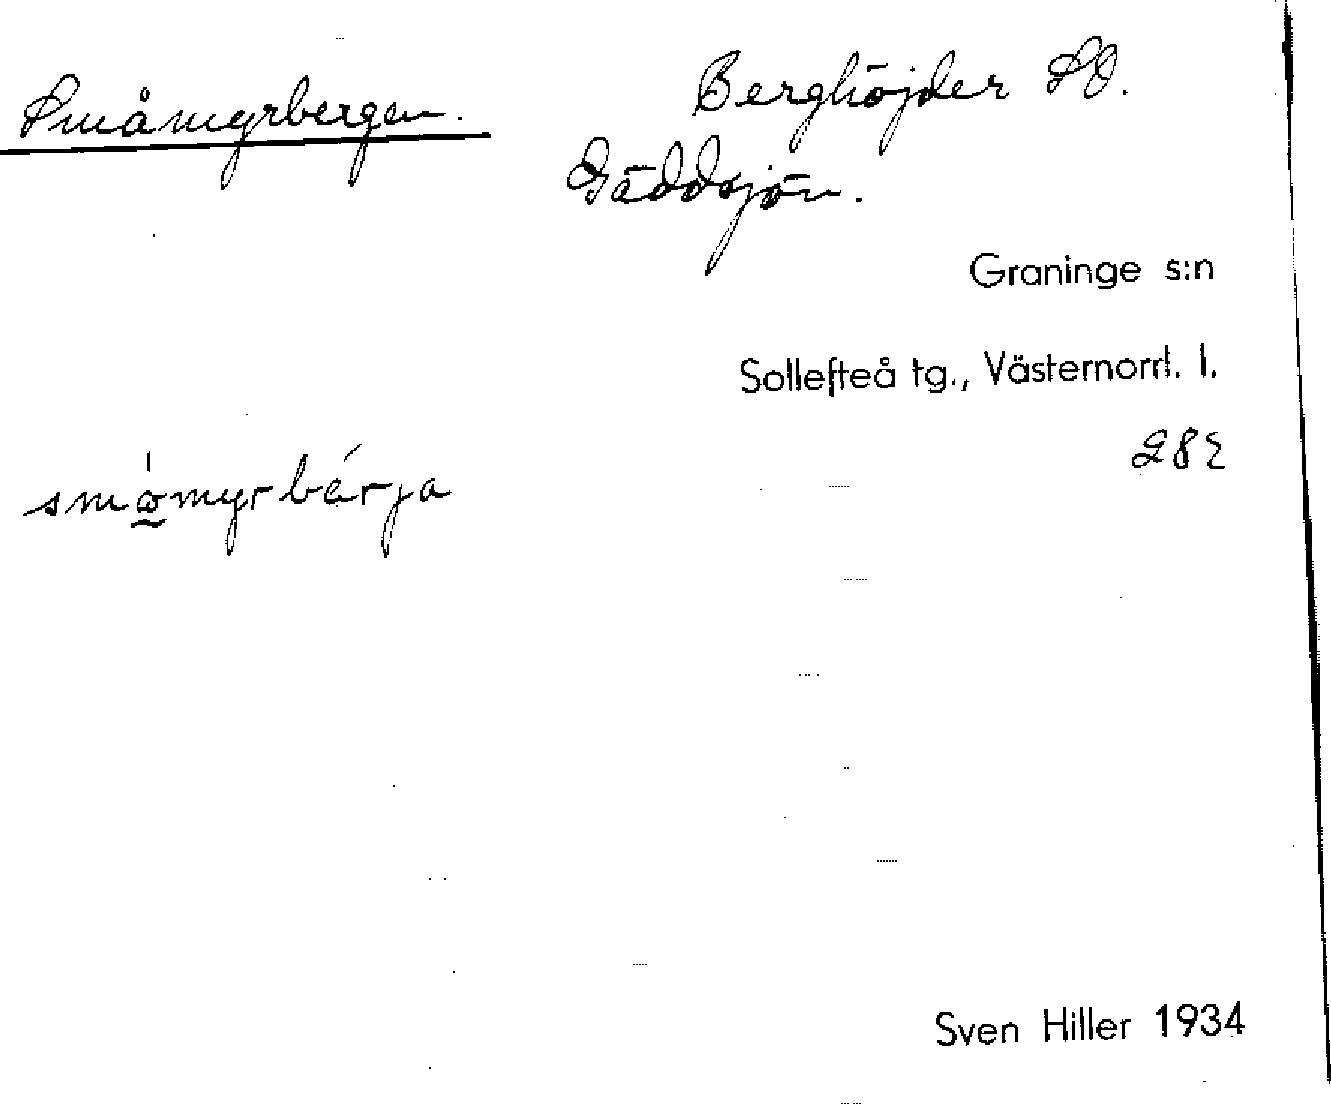 Småmyrbergen.
Berghöjder SO.
Gäddsjön.
Graninge s:n
Sollefteå tg., Västernorrl. l.
282
småmyrbärja
Sven Hiller 1934